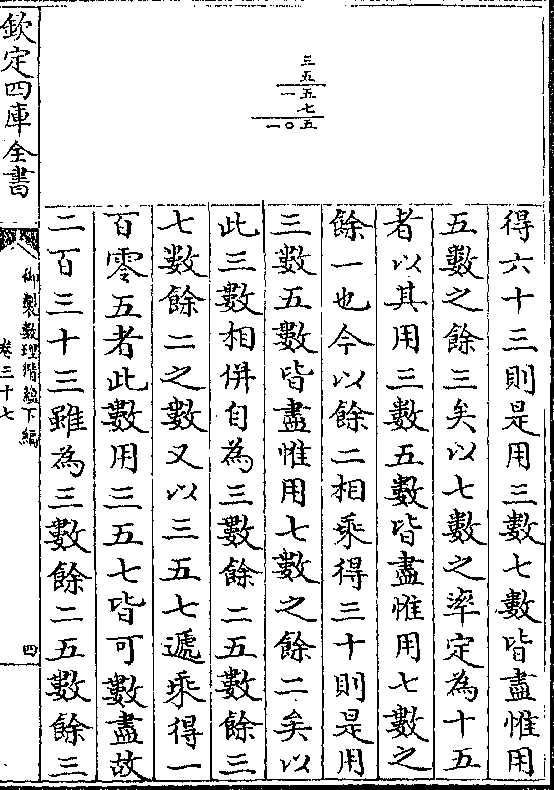 三
五
一五
七
一〇五
得六十三則是用三數七數皆盡惟用
五數之餘三矣以七數之率定為十五
者以其用三數五數皆盡惟用七數之
餘一也今以餘二相乘得三十則是用
三數五數皆盡惟用七數之餘二矣以
此三數相併自為三數餘二五數餘三
七數餘二之數又以三五七遞乘得一
百零五者此數用三五七皆可數盡故
二百三十三雖為三數餘二五數餘三
欽定四庫全書
御製數理精蘊下編
卷三十七
四